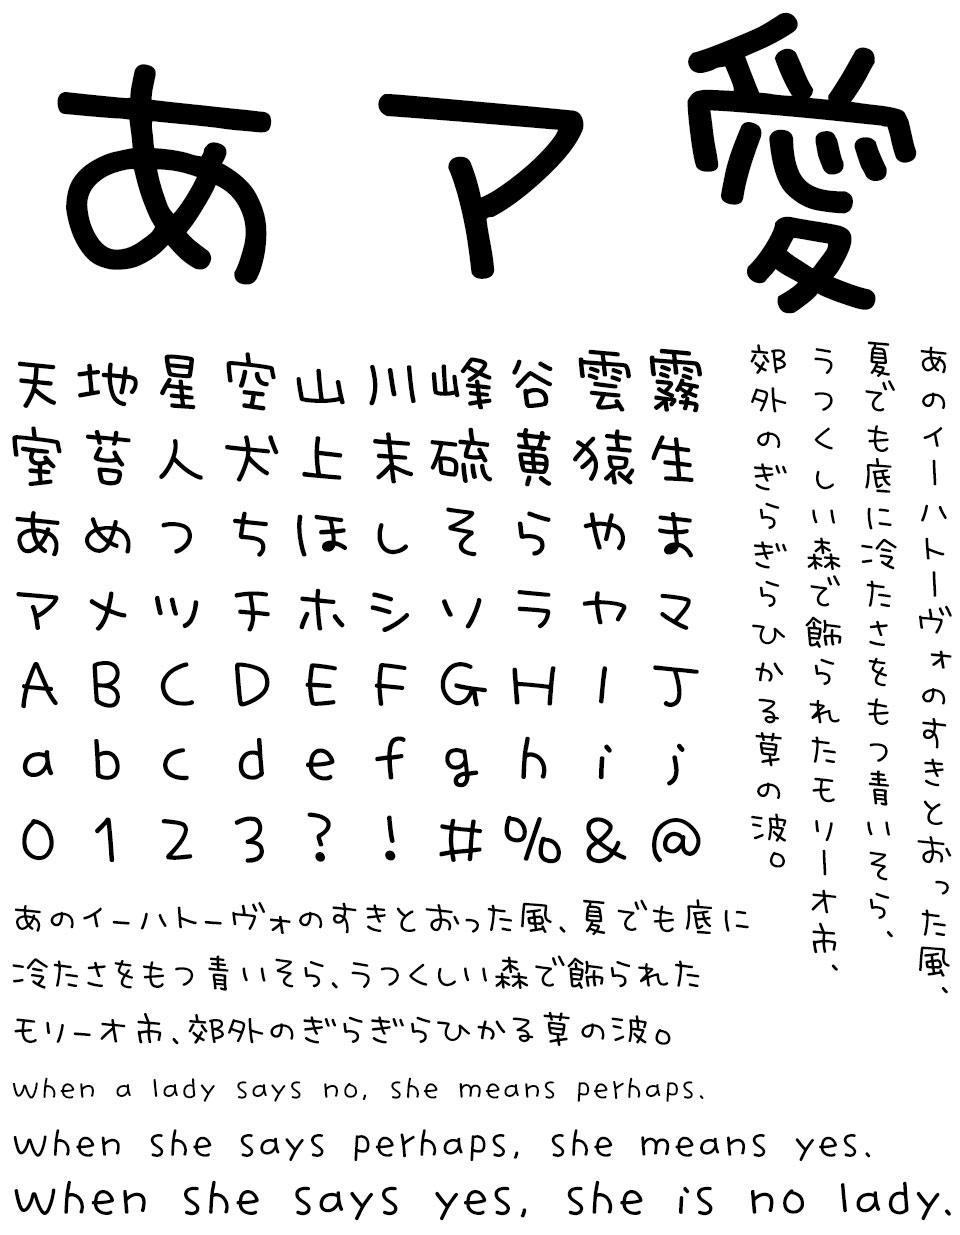 あア愛
天地星空山川峰谷雲霧
室苔人犬上末硫黄猿生
あめつちほしそらやま
アメツチホシソラヤマ
ABCDEFGHIJ
abcdefghij
0123?!#%&@
あのイーハトーヴォのすきとおった風、
夏でも底に冷たさをもつ青いそら、
うつくしい森で飾られたモリーオ市、
郊外のぎらぎらひかる草の波。
あのイーハトーヴォのすきとおった風、夏でも底に
冷たさをもつ青いそら、うつくしい森で飾られた
モリーオ市、郊外のぎらぎらひかる草の波。
when a lady says no, she means perhaps.
when she says perhaps, she means yes.
when she says yes, she is no lady.